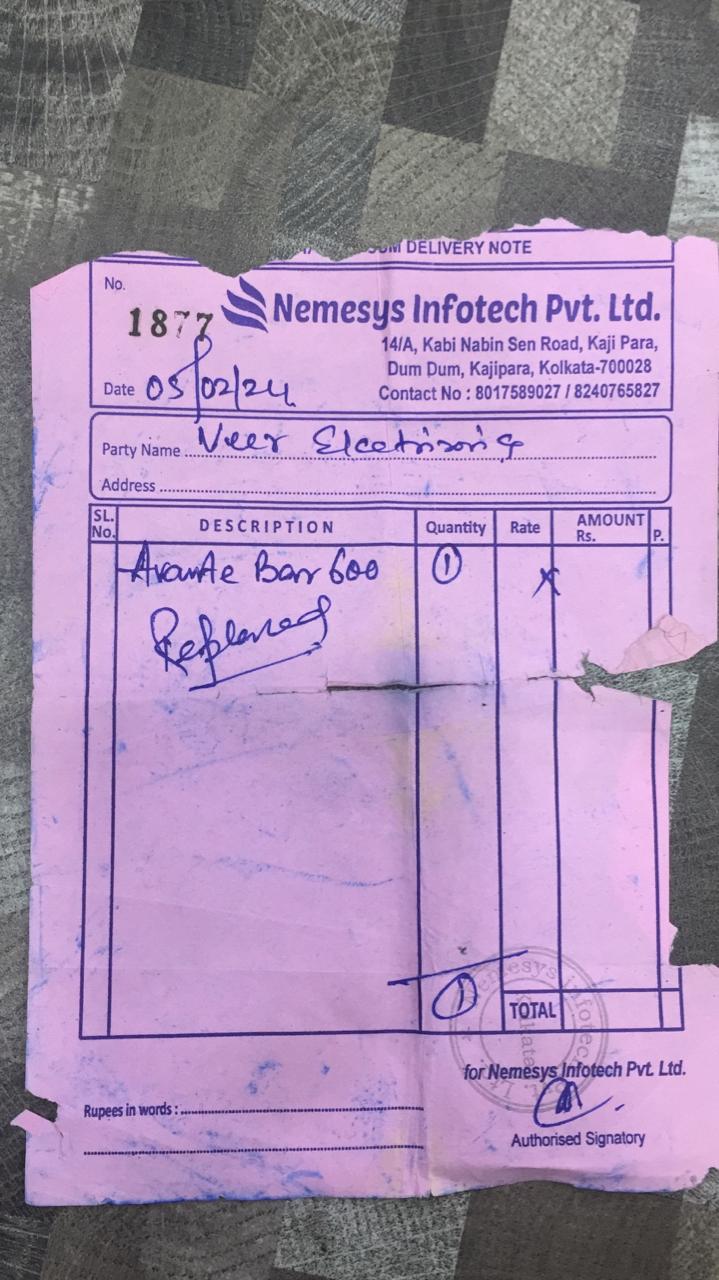 DELIVERY NOTE
No.
1877
Nemesys Infotech Pvt. Ltd.
14/A, Kabi Nabin Sen Road, Kaji Para,
Dum Dum, Kajipara, Kolkata-700028
Contact No : 8017589027 / 8240765827
Date 05/02/24
Party Name Veer
Address
SL. No. DESCRIPTION Quantity Rate AMOUNT Rs. P.
Bar 600 1 x
1
TOTAL
Nemesys Infotech
Kolkata
for Nemesys Infotech Pvt. Ltd.
Rupees in words :
Authorised Signatory